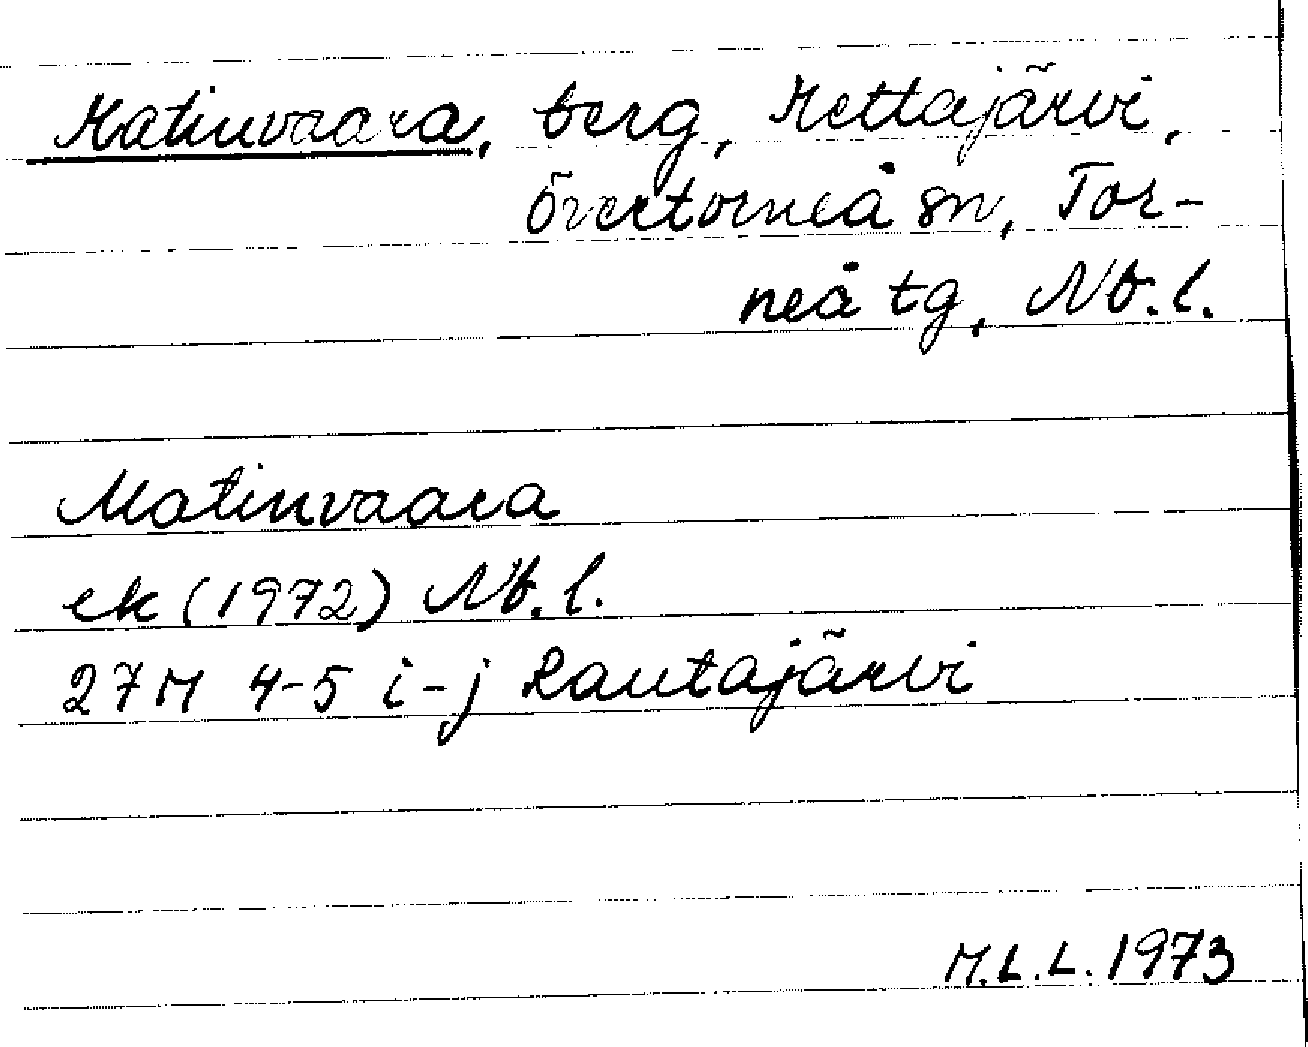 Matinvaara, berg, Mettäjärvi,
Övertorneå sn, Tor-
neå tg, Nb. l.
Matinvaara
ek (1972) Nb. l.
27 M 4-5 i-j Rautajärvi
M.L.L. 1973